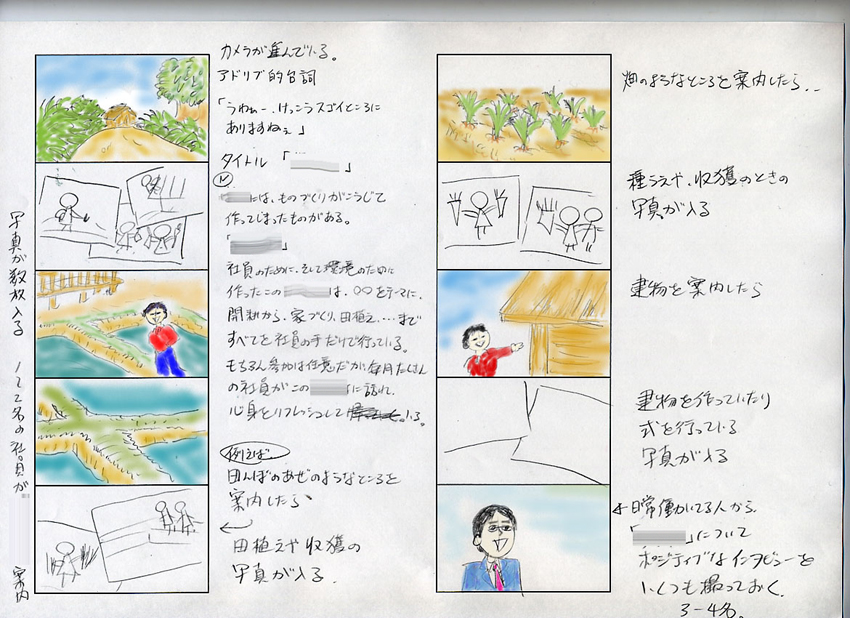 カメラが進んでいる。
アドリブ的台詞
「うわぁー、けっこうスゴイところに
ありますねぇ」
タイトル「　　」
には、ものづくりがこうじて
作ってしまったものがある。
「　　」
社員のために、そして環境のために
作ったこの　　は、〇〇をテーマに、
開耕から、家づくり、田植え、…まで
すべてを社員の手だけで行っている。
もちろん参加は任意だが、毎月たくさん
の社員がこの　　に訪れ、
心身をリフレッシュして いる。
例えば
田んぼのあぜのようなところを
案内したら、
田植えや収獲の
写真が入る。
写真が数枚入る
1〜2名の社員が
案内
畑のようなところを案内したら..
種うえや、収獲のときの
写真が入る
建物を案内したら
建物を作っていたり
式を行っている
写真が入る
←日常働いてる人から、
「　　」について
ポジティブなインタビューを
いくつも撮っておく。
3-4名。